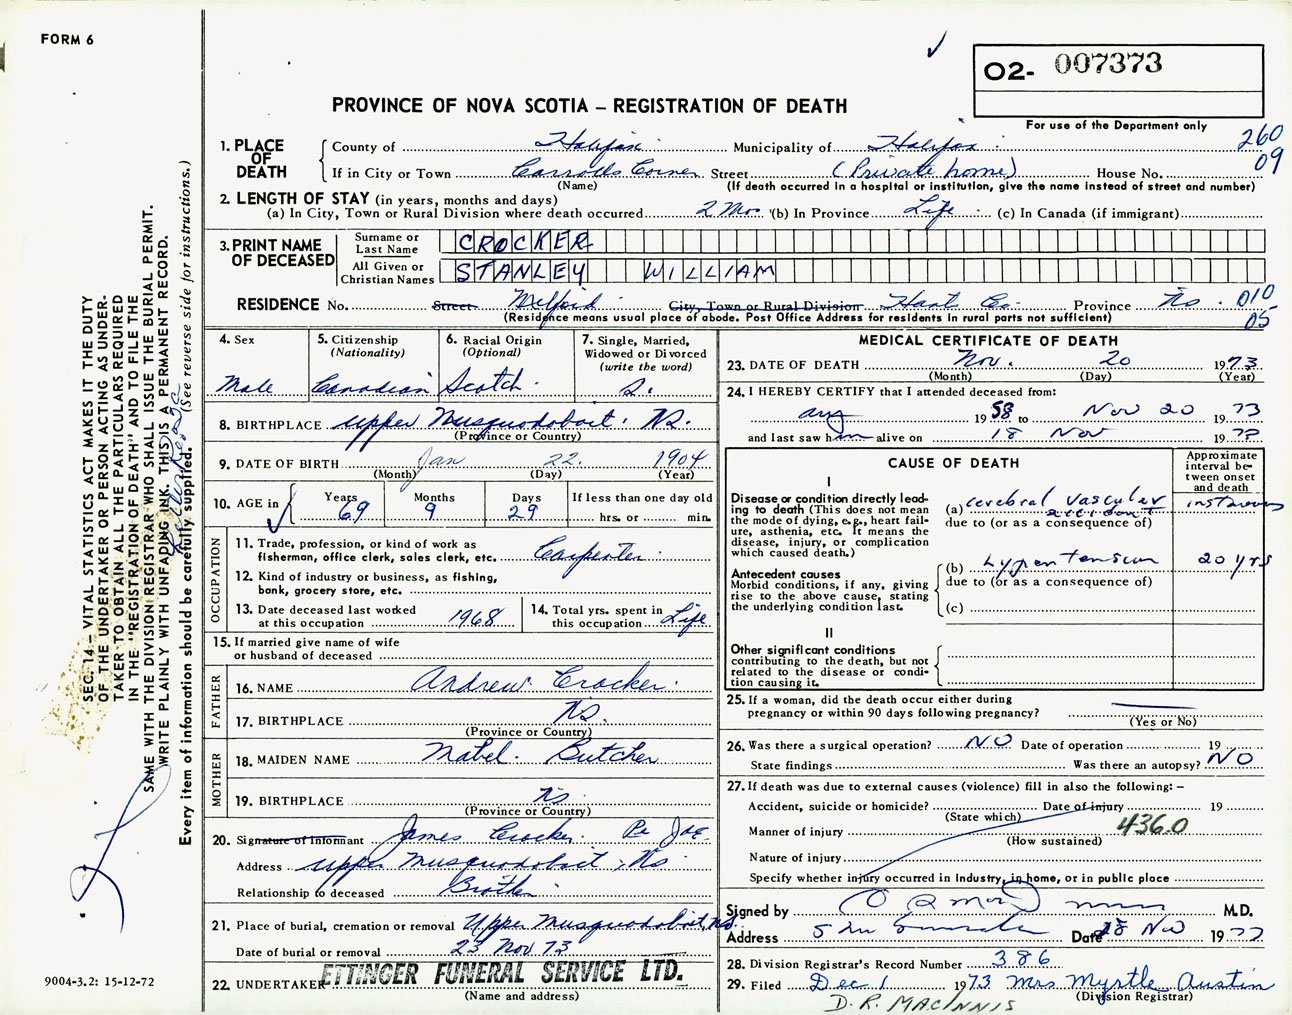 FORM 6
O2- 007373
For use of the Department only
PROVINCE OF NOVA SCOTIA – REGISTRATION OF DEATH
1. PLACE OF DEATH
County of Halifax Municipality of Halifax
260
If in City or Town Carrolls Corner Street (Private home) House No.
09
(Name) (If death occurred in a hospital or institution, give the name instead of street and number)
2. LENGTH OF STAY (in years, months and days)
(a) In City, Town or Rural Division where death occurred 2 Mo. (b) In Province Life (c) In Canada (if immigrant)
3. PRINT NAME OF DECEASED
Surname or Last Name CROCKER
All Given or Christian Names STANLEY WILLIAM
RESIDENCE No. Street Milford City, Town or Rural Division Hants Co. Province NS. 010
(Residence means usual place of abode. Post Office Address for residents in rural parts not sufficient) 05
4. Sex
Male
5. Citizenship
(Nationality)
Canadian
6. Racial Origin
(Optional)
Scotch.
7. Single, Married,
Widowed or Divorced
(write the word)
S.
8. BIRTHPLACE Upper Musquodoboit, NS.
(Province or Country)
9. DATE OF BIRTH Jan 22. 1904
(Month) (Day) (Year)
10. AGE in
Years 69
Months 9
Days 29
If less than one day old
hrs. or min.
OCCUPATION
11. Trade, profession, or kind of work as
fisherman, office clerk, sales clerk, etc. Carpenter.
12. Kind of industry or business, as fishing,
bank, grocery store, etc.
13. Date deceased last worked
at this occupation 1968
14. Total yrs. spent in
this occupation Life
15. If married give name of wife
or husband of deceased
FATHER
16. NAME Andrew Crocker.
17. BIRTHPLACE NS.
(Province or Country)
MOTHER
18. MAIDEN NAME Mabel. Butcher
19. BIRTHPLACE NS
(Province or Country)
20. Signature of Informant James Crocker. Per
Address Upper Musquodoboit, NS.
Relationship to deceased Brother
21. Place of burial, cremation or removal Upper Musquodoboit, NS.
Date of burial or removal 23 Nov 73
22. UNDERTAKER ETTINGER FUNERAL SERVICE LTD.
(Name and address)
MEDICAL CERTIFICATE OF DEATH
23. DATE OF DEATH Nov. 20 1973
(Month) (Day) (Year)
24. I HEREBY CERTIFY that I attended deceased from:
Aug 1958 to Nov 20 1973
and last saw him alive on 18 Nov 19
CAUSE OF DEATH
Approximate
interval be-
tween onset
and death
I
Disease or condition directly lead-
ing to death (This does not mean
the mode of dying, e.g., heart fail-
ure, asthenia, etc. It means the
disease, injury, or complication
which caused death.)
(a) cerebral vascular accident
due to (or as a consequence of)
Antecedent causes
Morbid conditions, if any, giving
rise to the above cause, stating
the underlying condition last.
(b) hypertension 20 yrs
due to (or as a consequence of)
(c)
II
Other significant conditions
contributing to the death, but not
related to the disease or condi-
tion causing it.
25. If a woman, did the death occur either during
pregnancy or within 90 days following pregnancy?
(Yes or No)
26. Was there a surgical operation? NO Date of operation 19
State findings Was there an autopsy? NO
27. If death was due to external causes (violence) fill in also the following: –
Accident, suicide or homicide? Date of injury 19
(State which)
Manner of injury 436.0
(How sustained)
Nature of injury
Specify whether injury occurred in industry, in home, or in public place
Signed by M.D.
Address Date 28 Nov 19
28. Division Registrar's Record Number 386
29. Filed Dec 1 1973 Mrs Myrtle Austin
(Division Registrar)
D. R. MACINNIS
SEC. 14 – VITAL STATISTICS ACT MAKES IT THE DUTY
OF THE UNDERTAKER OR PERSON ACTING AS UNDER-
TAKER TO OBTAIN ALL THE PARTICULARS REQUIRED
IN THE "REGISTRATION OF DEATH" AND TO FILE THE
SAME WITH THE DIVISION REGISTRAR WHO SHALL ISSUE THE BURIAL PERMIT.
WRITE PLAINLY WITH UNFADING INK. THIS IS A PERMANENT RECORD.
Every item of information should be carefully supplied. (See reverse side for instructions.)
9004-3.2: 15-12-72